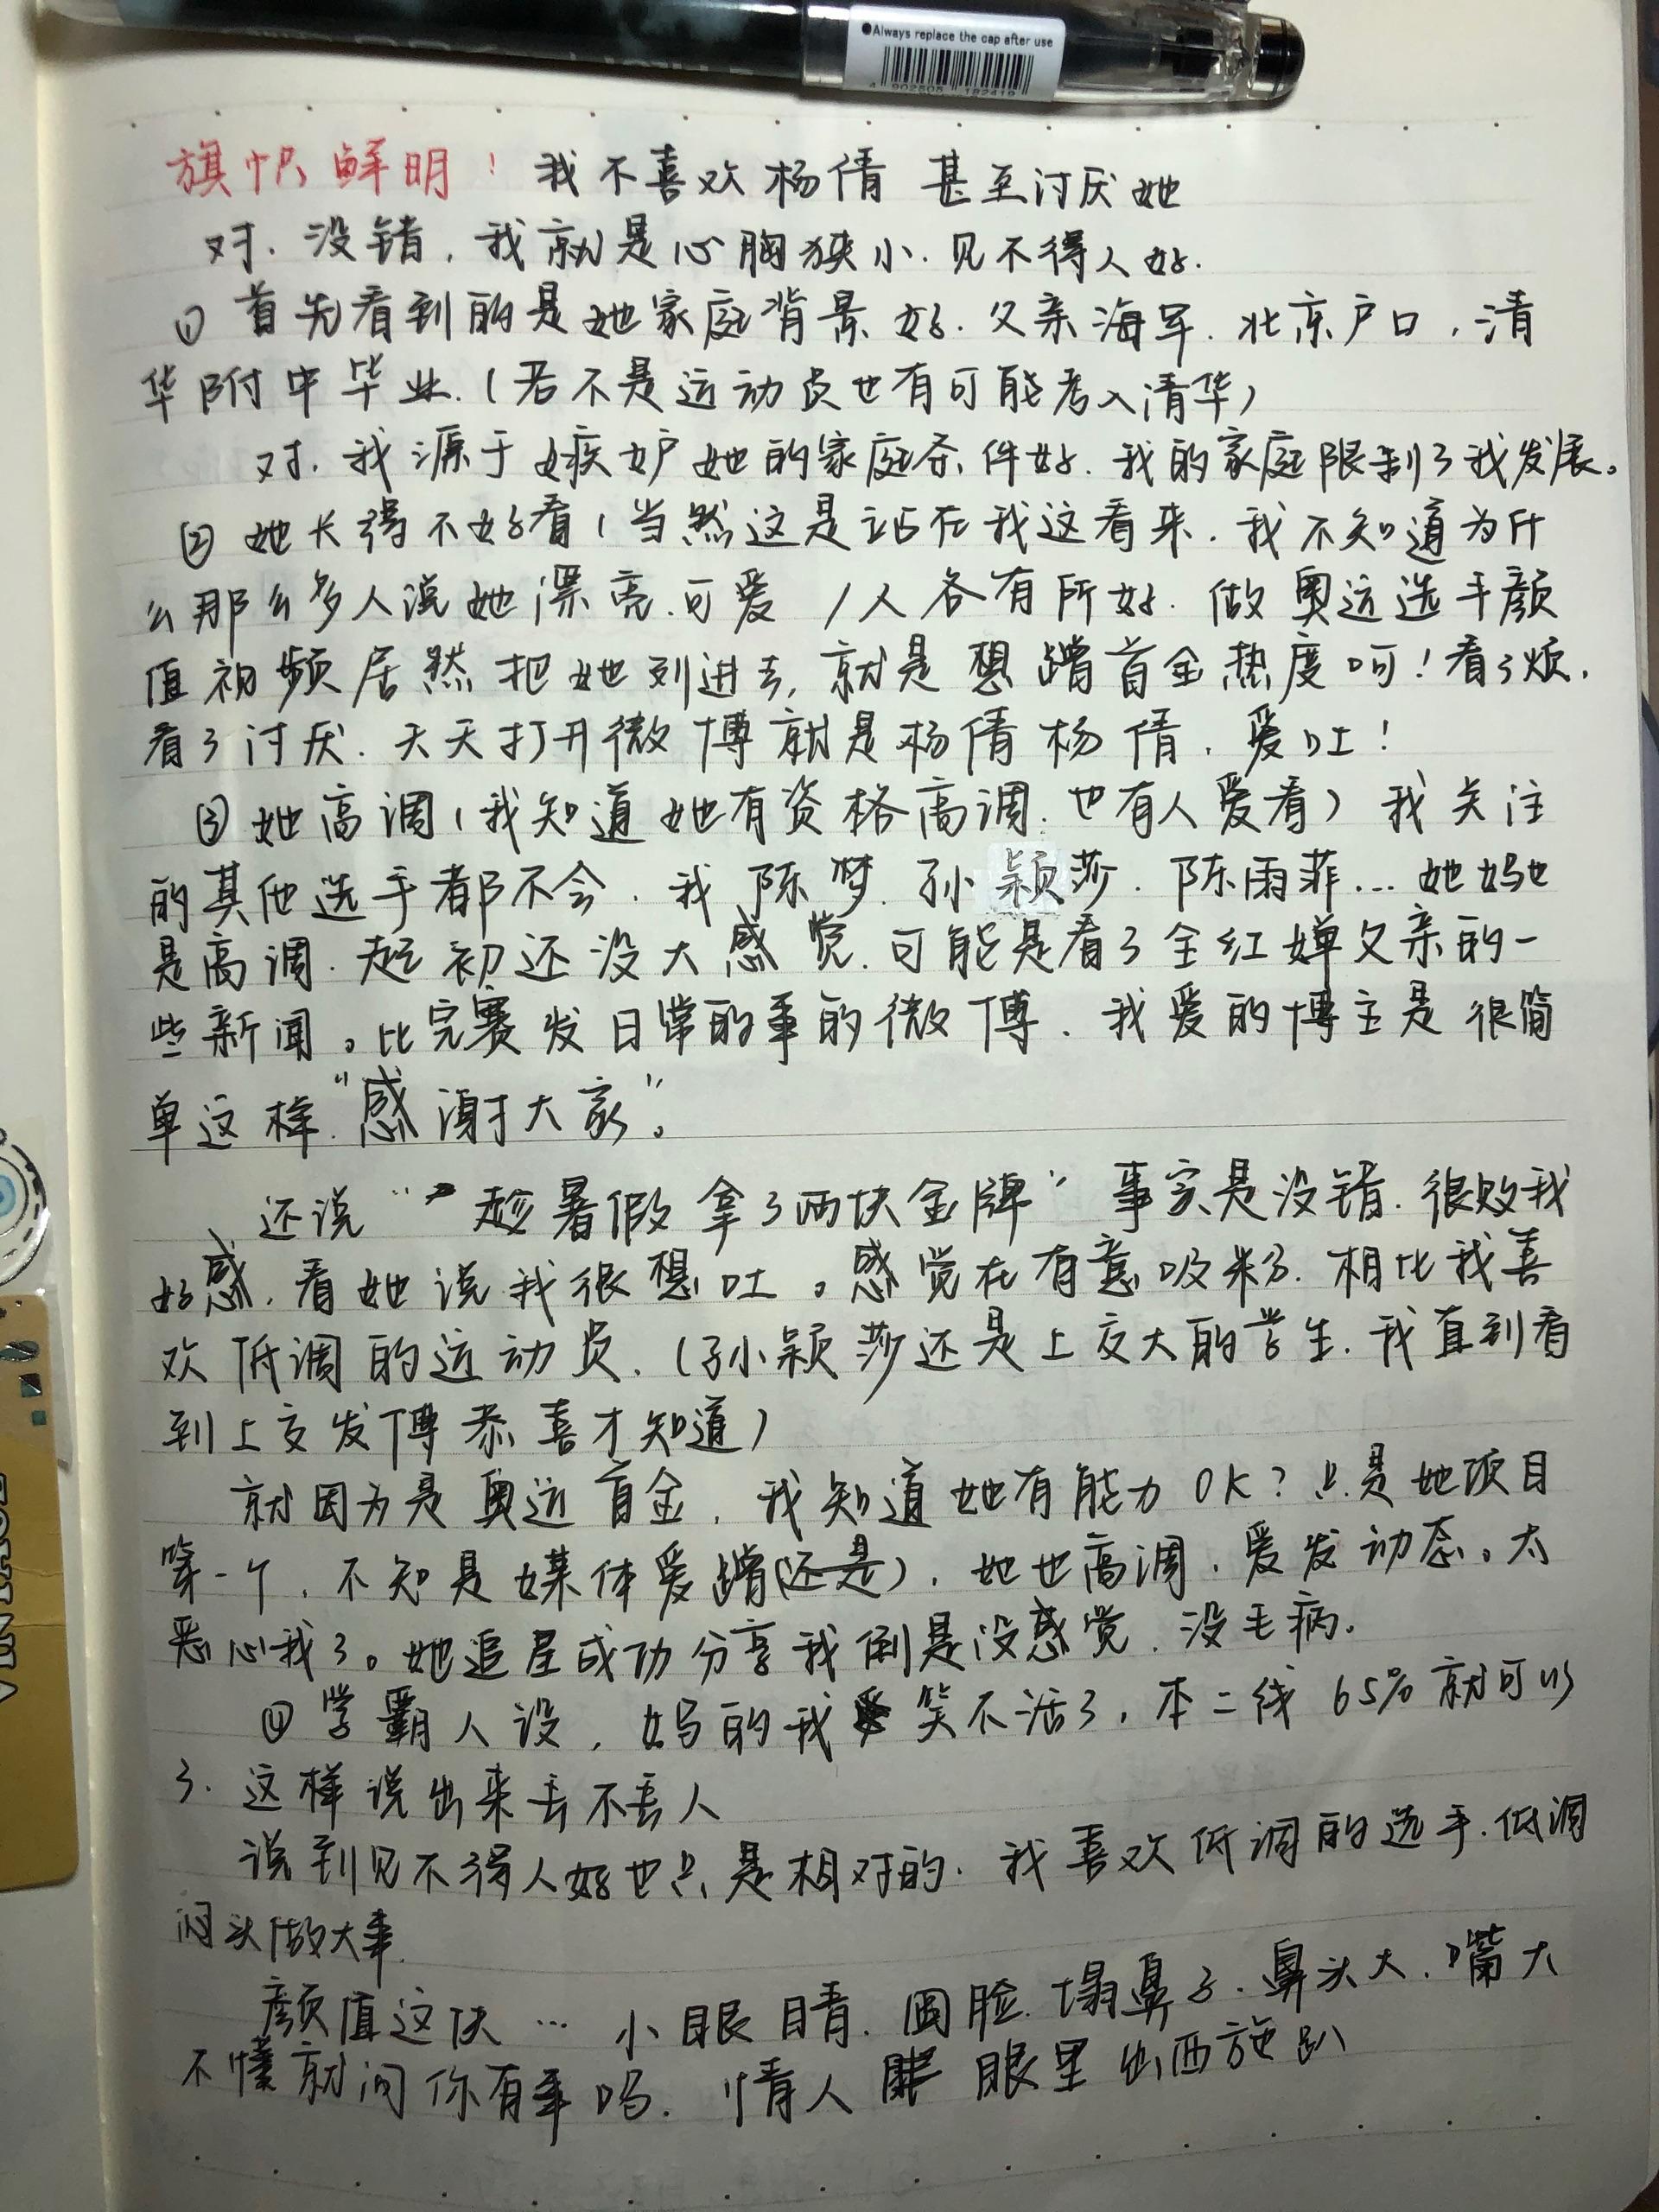 ●Always replace the cap after use
4 902505 182419
旗帜鲜明！我不喜欢杨倩 甚至讨厌她
对.没错,我就是心胸狭小.见不得人好.
① 首先看到的是她家庭背景好.父亲海军.北京户口,清
华附中毕业.(若不是运动员也有可能考入清华)
对.我源于嫉妒她的家庭条件好.我的家庭限制了我发展。
② 她长得不好看(当然这是站在我这看来.我不知道为什
么那么多人说她漂亮.可爱 /人各有所好.做奥运选手颜
值视频居然把她列进去,就是想蹭首金热度呵!看了烦,
看了讨厌.天天打开微博就是杨倩杨倩,爱吐!
③ 她高调(我知道她有资格高调.也有人爱看)我关注
的其他选手都不会.我陈梦.孙颖莎.陈雨菲...她妈也
是高调.起初还没大感觉.可能是看了全红婵父亲的一
些新闻。比完赛发日常的事的微博.我爱的博主是很简
单这样"感谢大家"。
还说"趁暑假拿了两块金牌"事实是没错.很败我
好感.看她说我很想吐。感觉在有意吸粉.相比我喜
欢低调的运动员.(孙颖莎还是上交大的学生.我直到看
到上交发博恭喜才知道)
就因为是奥运首金,我知道她有能力OK?只是她项目
第一个,不知是媒体爱蹭(还是),她也高调,爱发动态。太
恶心我了。她追星成功分享我倒是没感觉.没毛病.
④ 学霸人设,妈的我笑不活了,本二线65%就可以
了.这样说出来丢不丢人
说到见不得人好也只是相对的.我喜欢低调的选手.低调
闷头做大事.
颜值这块… 小眼睛.圆脸.塌鼻子.鼻头大.嘴大
不懂就问你有事吗.情人眼里出西施趴
VINTAGE